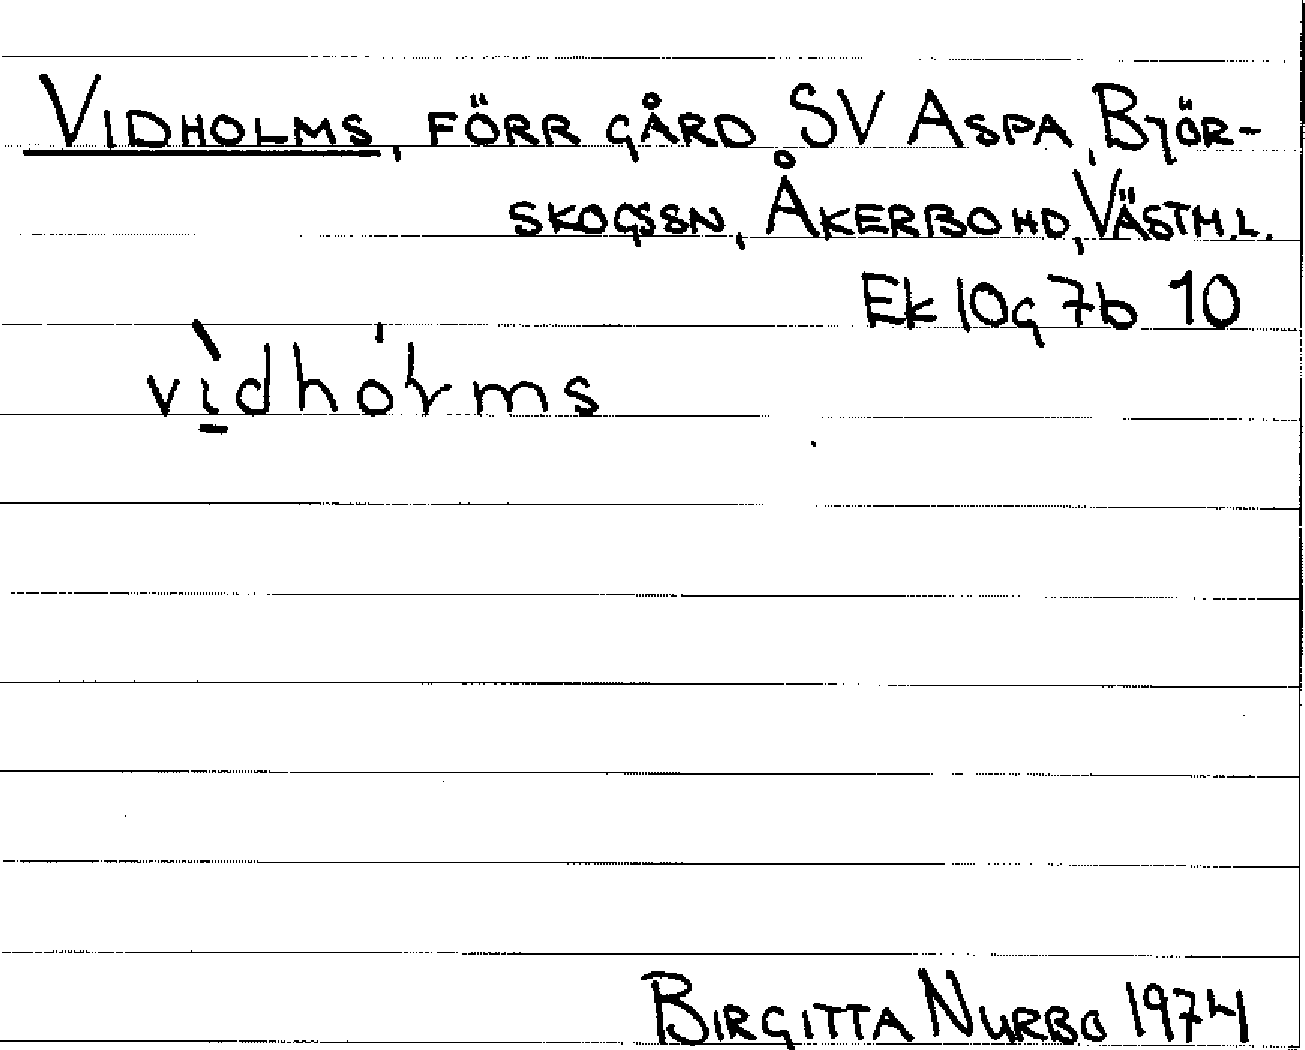 VIDHOLMS, FÖRR GÅRD SV ASPA, BJÖR-
SKOGSSN, ÅKERBO HD, VÄSTM.L.
Ek 10g 7b 10
BIRGITTA NURBO 1974